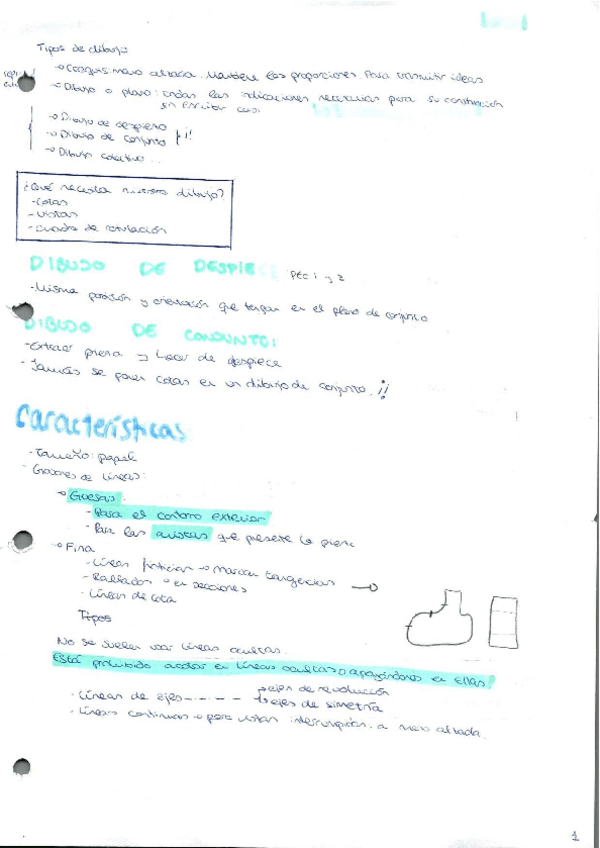 Tipos de dibujo:
→ Croquis: mano alzada. Mantiene las proporciones. Para transmitir ideas
→ Dibujo o plano: todas las indicaciones necesarias para su construcción
→ Dibujo de despiece
→ Dibujo de conjunto } ¡!
→ Dibujo colectivo...
¿Qué necesita nuestro dibujo?
- Cotas
- Vistas
- cuadro de rotulación
DIBUJO DE DESPIECE PEC 1 y 2
- Misma posición y orientación que tengan en el plano de conjunto
DIBUJO DE CONJUNTO:
- Extraer pieza ⇒ hacer de despiece
- Jamás se ponen cotas en un dibujo de conjunto ¡!
Características
- Tamaño: papel
- Grosores de líneas:
→ Gruesas
- Para el contorno exterior
- Para las aristas que presente la pieza
→ Fina
- Líneas ficticias → marcar tangencias
- Rallados → en secciones
- Líneas de cota
Tipos
No se suelen usar líneas ocultas.
Está prohibido acotar en líneas ocultas o apoyándonos en ellas!
- Líneas de ejes - - - - → ejes de revolución
→ ejes de simetría
- Líneas continuas → para vistas interrumpidas, a mano alzada.
1